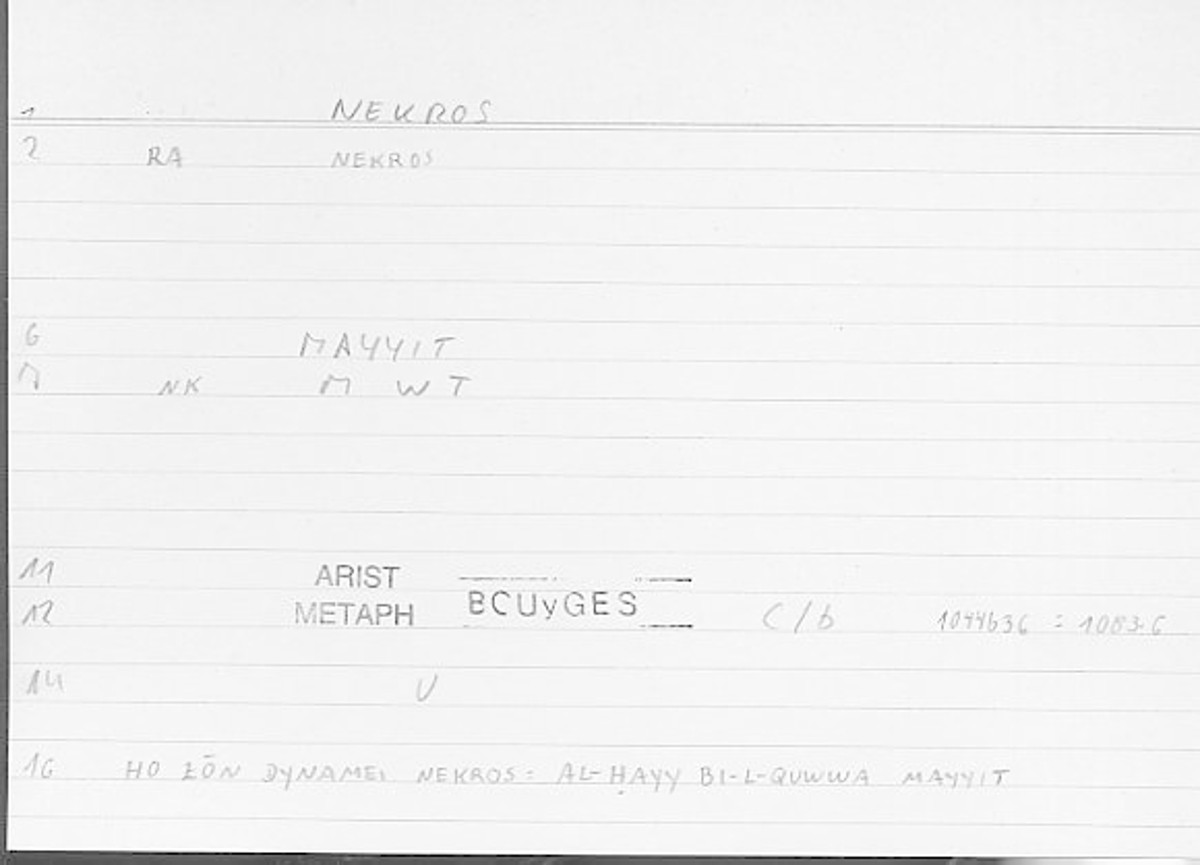 1 NEKROS
2 RA NEKROS
6 MAYYIT
7 NK M W T
11 ARIST
12 METAPH BCUyGES C/b 1044b36 : 1083.6
14 V
16 HO ZŌN DYNAMEI NEKROS = AL-ḤAYY BI-L-QUWWA MAYYIT